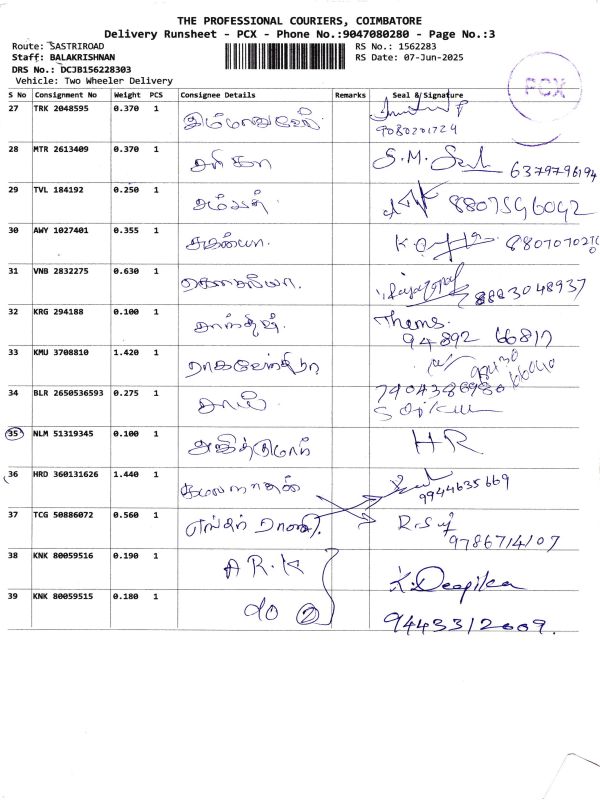 THE PROFESSIONAL COURIERS, COIMBATORE
Delivery Runsheet - PCX - Phone No.:9047080280 - Page No.:3
Route: SASTRIROAD
Staff: BALAKRISHNAN
DRS No.: DCJB156228303
Vehicle: Two Wheeler Delivery
RS No.: 1562283
RS Date: 07-Jun-2025
PCX
S No Consignment No Weight PCS Consignee Details Remarks Seal & Signature
27 TRK 2048595 0.370 1
9080201724
28 MTR 2613409 0.370 1 S.M. 6379796194
29 TVL 184192 0.250 1 8807596042
30 AWY 1027401 0.355 1
31 VNB 2832275 0.630 1 கௌசல்யா. Rajagopal 8883048937
32 KRG 294188 0.100 1 Thams.
94892 66817
33 KMU 3708810 1.420 1 ராகவேந்திரா 98430 66040
34 BLR 2650536593 0.275 1 7904386980
35 NLM 51319345 0.100 1 HR
36 HRD 360131626 1.440 1 கமலநாதன் 9944635669
37 TCG 50886072 0.560 1 R.
9786714107
38 KNK 80059516 0.190 1 A R.K K.Deepika
39 KNK 80059515 0.180 1 do 2 9443312009.